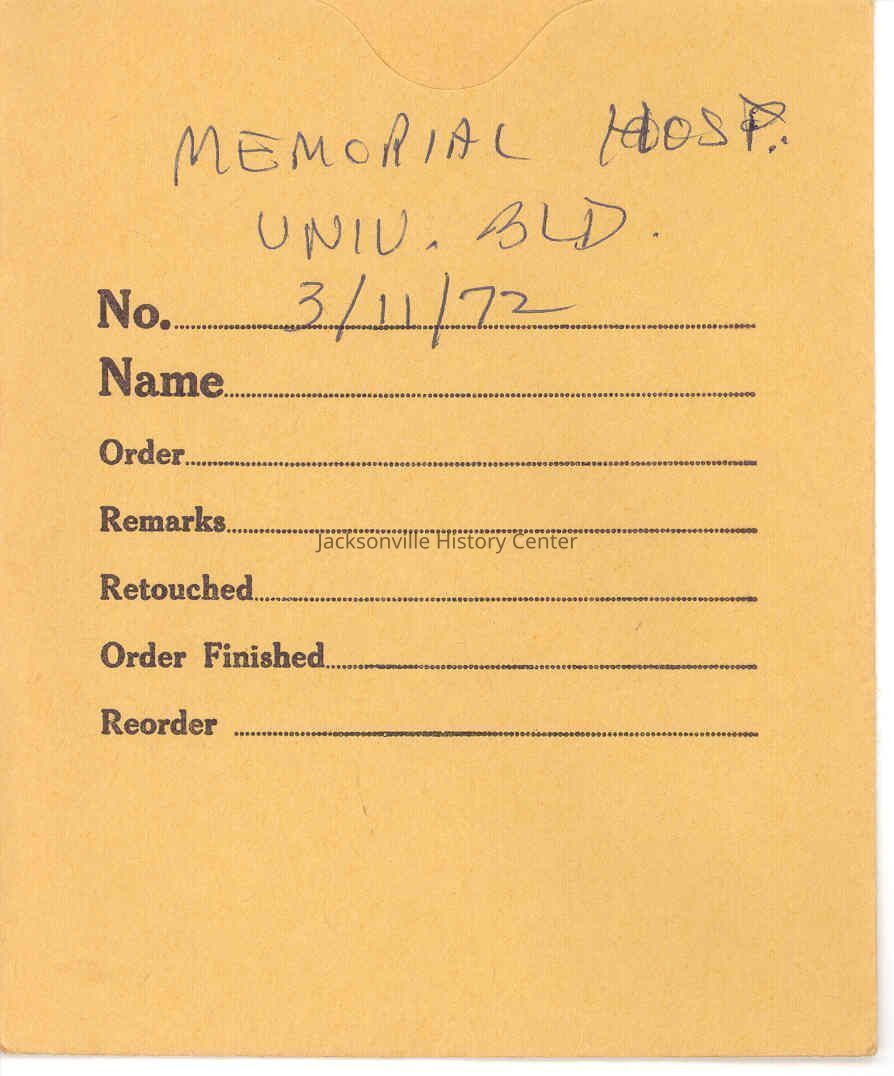 MEMORIAL HOSP.
UNIV. BLD.
No. 3/11/72
Name
Order
Remarks
Jacksonville History Center
Retouched
Order Finished
Reorder